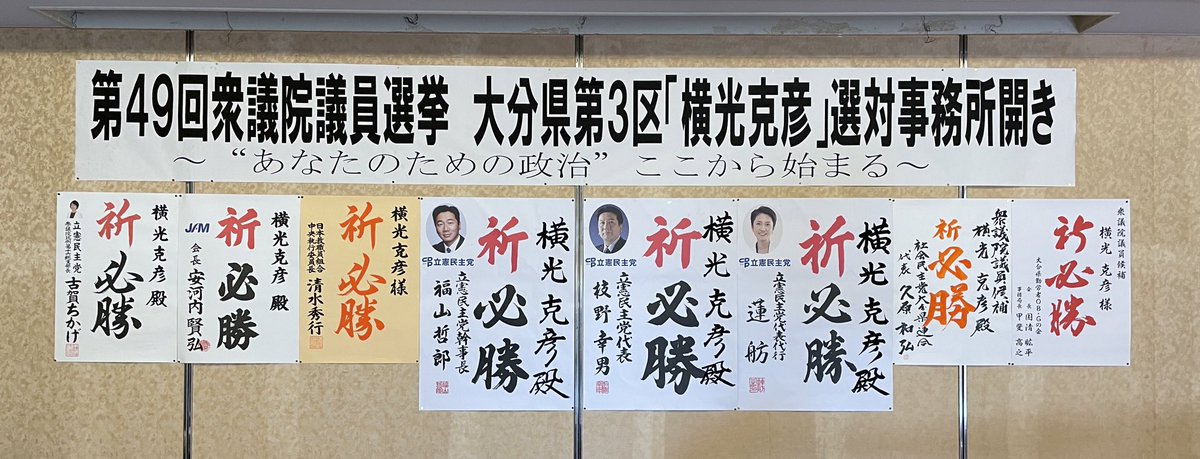 第49回衆議院議員選挙 大分県第3区「横光克彦」選対事務所開き
～“あなたのための政治” ここから始まる～
横光克彦 殿
祈 必勝
立憲民主党
古賀ちかげ
横光克彦 殿
祈 必勝
JAM
会長 安河内 賢弘
横光克彦様
祈 必勝
日本教職員組合
中央執行委員長 清水秀行
横光克彦殿
祈 必勝
立憲民主党
立憲民主党幹事長
福山哲郎
横光克彦殿
祈 必勝
立憲民主党
立憲民主党代表
枝野幸男
横光克彦殿
祈 必勝
立憲民主党
立憲民主党代表代行
蓮舫
衆議院議員候補
横光克彦殿
祈 必勝
社会民主党大分県連合
代表 久原和弘
衆議院議員候補
横光克彦様
祈必勝
大分県勤労者OB・Gの会
会長
事務局長 甲斐高之